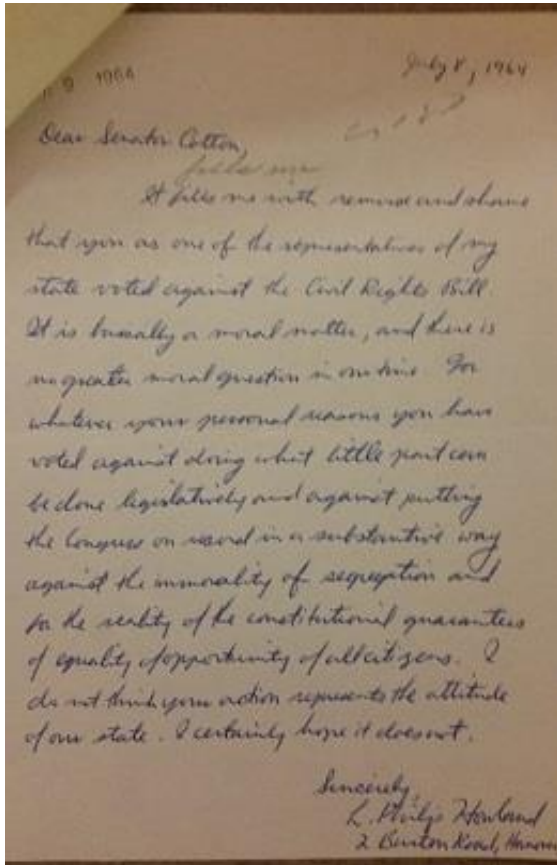 9 1964
July 8, 1964
Dear Senator Cotton,
fills me
It fills me with remorse and shame
that you as one of the representatives of my
state voted against the Civil Rights Bill.
It is basally a moral matter, and there is
no greater moral question in our time. For
whatever your personal reasons you have
voted against doing what little part can
be done legislatively and against putting
the Congress on record in a substantive way
against the immorality of segregation and
for the reality of the constitutional guarantees
of equality of opportunity of all citizens. I
do not think your action represents the attitude
of our state. I certainly hope it does not.
Sincerely,
L. Philip Howland
2 Burton Road, Hanover